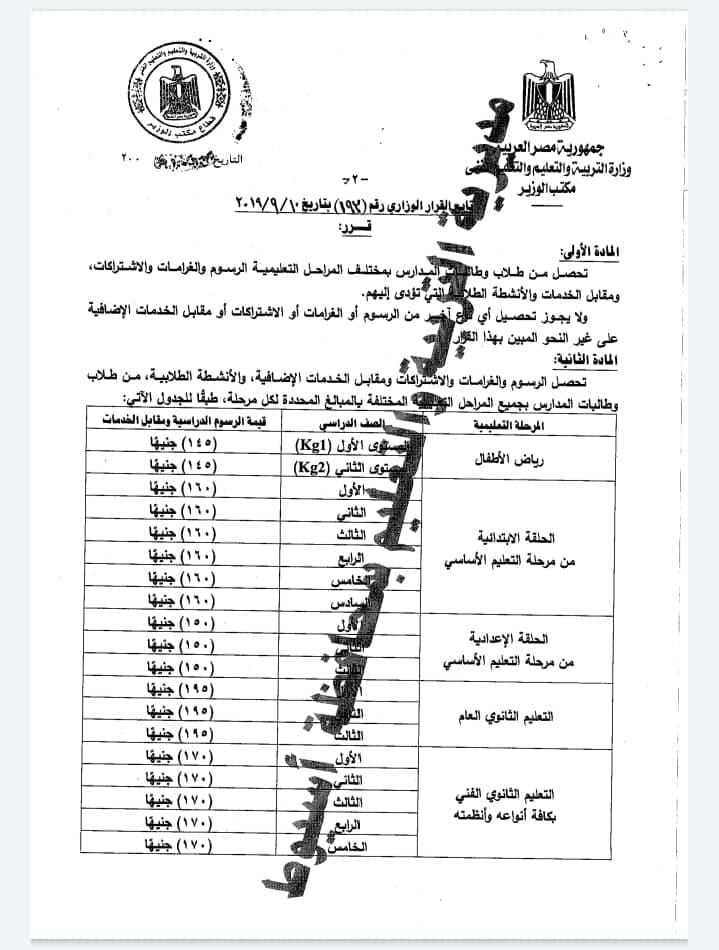 وزارة التربية والتعليم والتعليم الفني
قطاع مكتب الوزير
جمهورية مصر العربية
وزارة التربية والتعليم والتعليم الفنى
مكتب الوزير
التاريخ ٢٠٠
-٢-
تابع القرار الوزاري رقم (١٩٢) بتاريخ ٢٠١٩/٩/١٠
قــرر:
المادة الأولى:
تحصل من طلاب وطالبات المدارس بمختلف المراحل التعليمية الرسوم والغرامات والاشتراكات،
ومقابل الخدمات والأنشطة الطلابية التي تؤدى إليهم.
ولا يجوز تحصيل أي نوع آخر من الرسوم أو الغرامات أو الاشتراكات أو مقابل الخدمات الإضافية
على غير النحو المبين بهذا القرار
المادة الثانية:
تحصل الرسوم والغرامات والاشتراكات ومقابل الخدمات الإضافية، والأنشطة الطلابية، من طلاب
وطالبات المدارس بجميع المراحل المختلفة بالمبالغ المحددة لكل مرحلة، طبقًا للجدول الآتي:
المرحلة التعليمية الصف الدراسي قيمة الرسوم الدراسية ومقابل الخدمات
رياض الأطفال المستوى الأول (Kg1) (١٤٥) جنيهًا
المستوى الثاني (Kg2) (١٤٥) جنيهًا
الحلقة الابتدائية
من مرحلة التعليم الأساسي
الأول (١٦٠) جنيهًا
الثاني (١٦٠) جنيهًا
الثالث (١٦٠) جنيهًا
الرابع (١٦٠) جنيهًا
الخامس (١٦٠) جنيهًا
السادس (١٦٠) جنيهًا
الحلقة الإعدادية
من مرحلة التعليم الأساسي
الأول (١٥٠) جنيهًا
الثاني (١٥٠) جنيهًا
الثالث (١٥٠) جنيهًا
التعليم الثانوي العام
الأول (١٩٥) جنيهًا
الثاني (١٩٥) جنيهًا
الثالث (١٩٥) جنيهًا
التعليم الثانوي الفني
بكافة أنواعه وأنظمته
الأول (١٧٠) جنيهًا
الثاني (١٧٠) جنيهًا
الثالث (١٧٠) جنيهًا
الرابع (١٧٠) جنيهًا
الخامس (١٧٠) جنيهًا
مديرية التربية والتعليم بمحافظة أسيوط